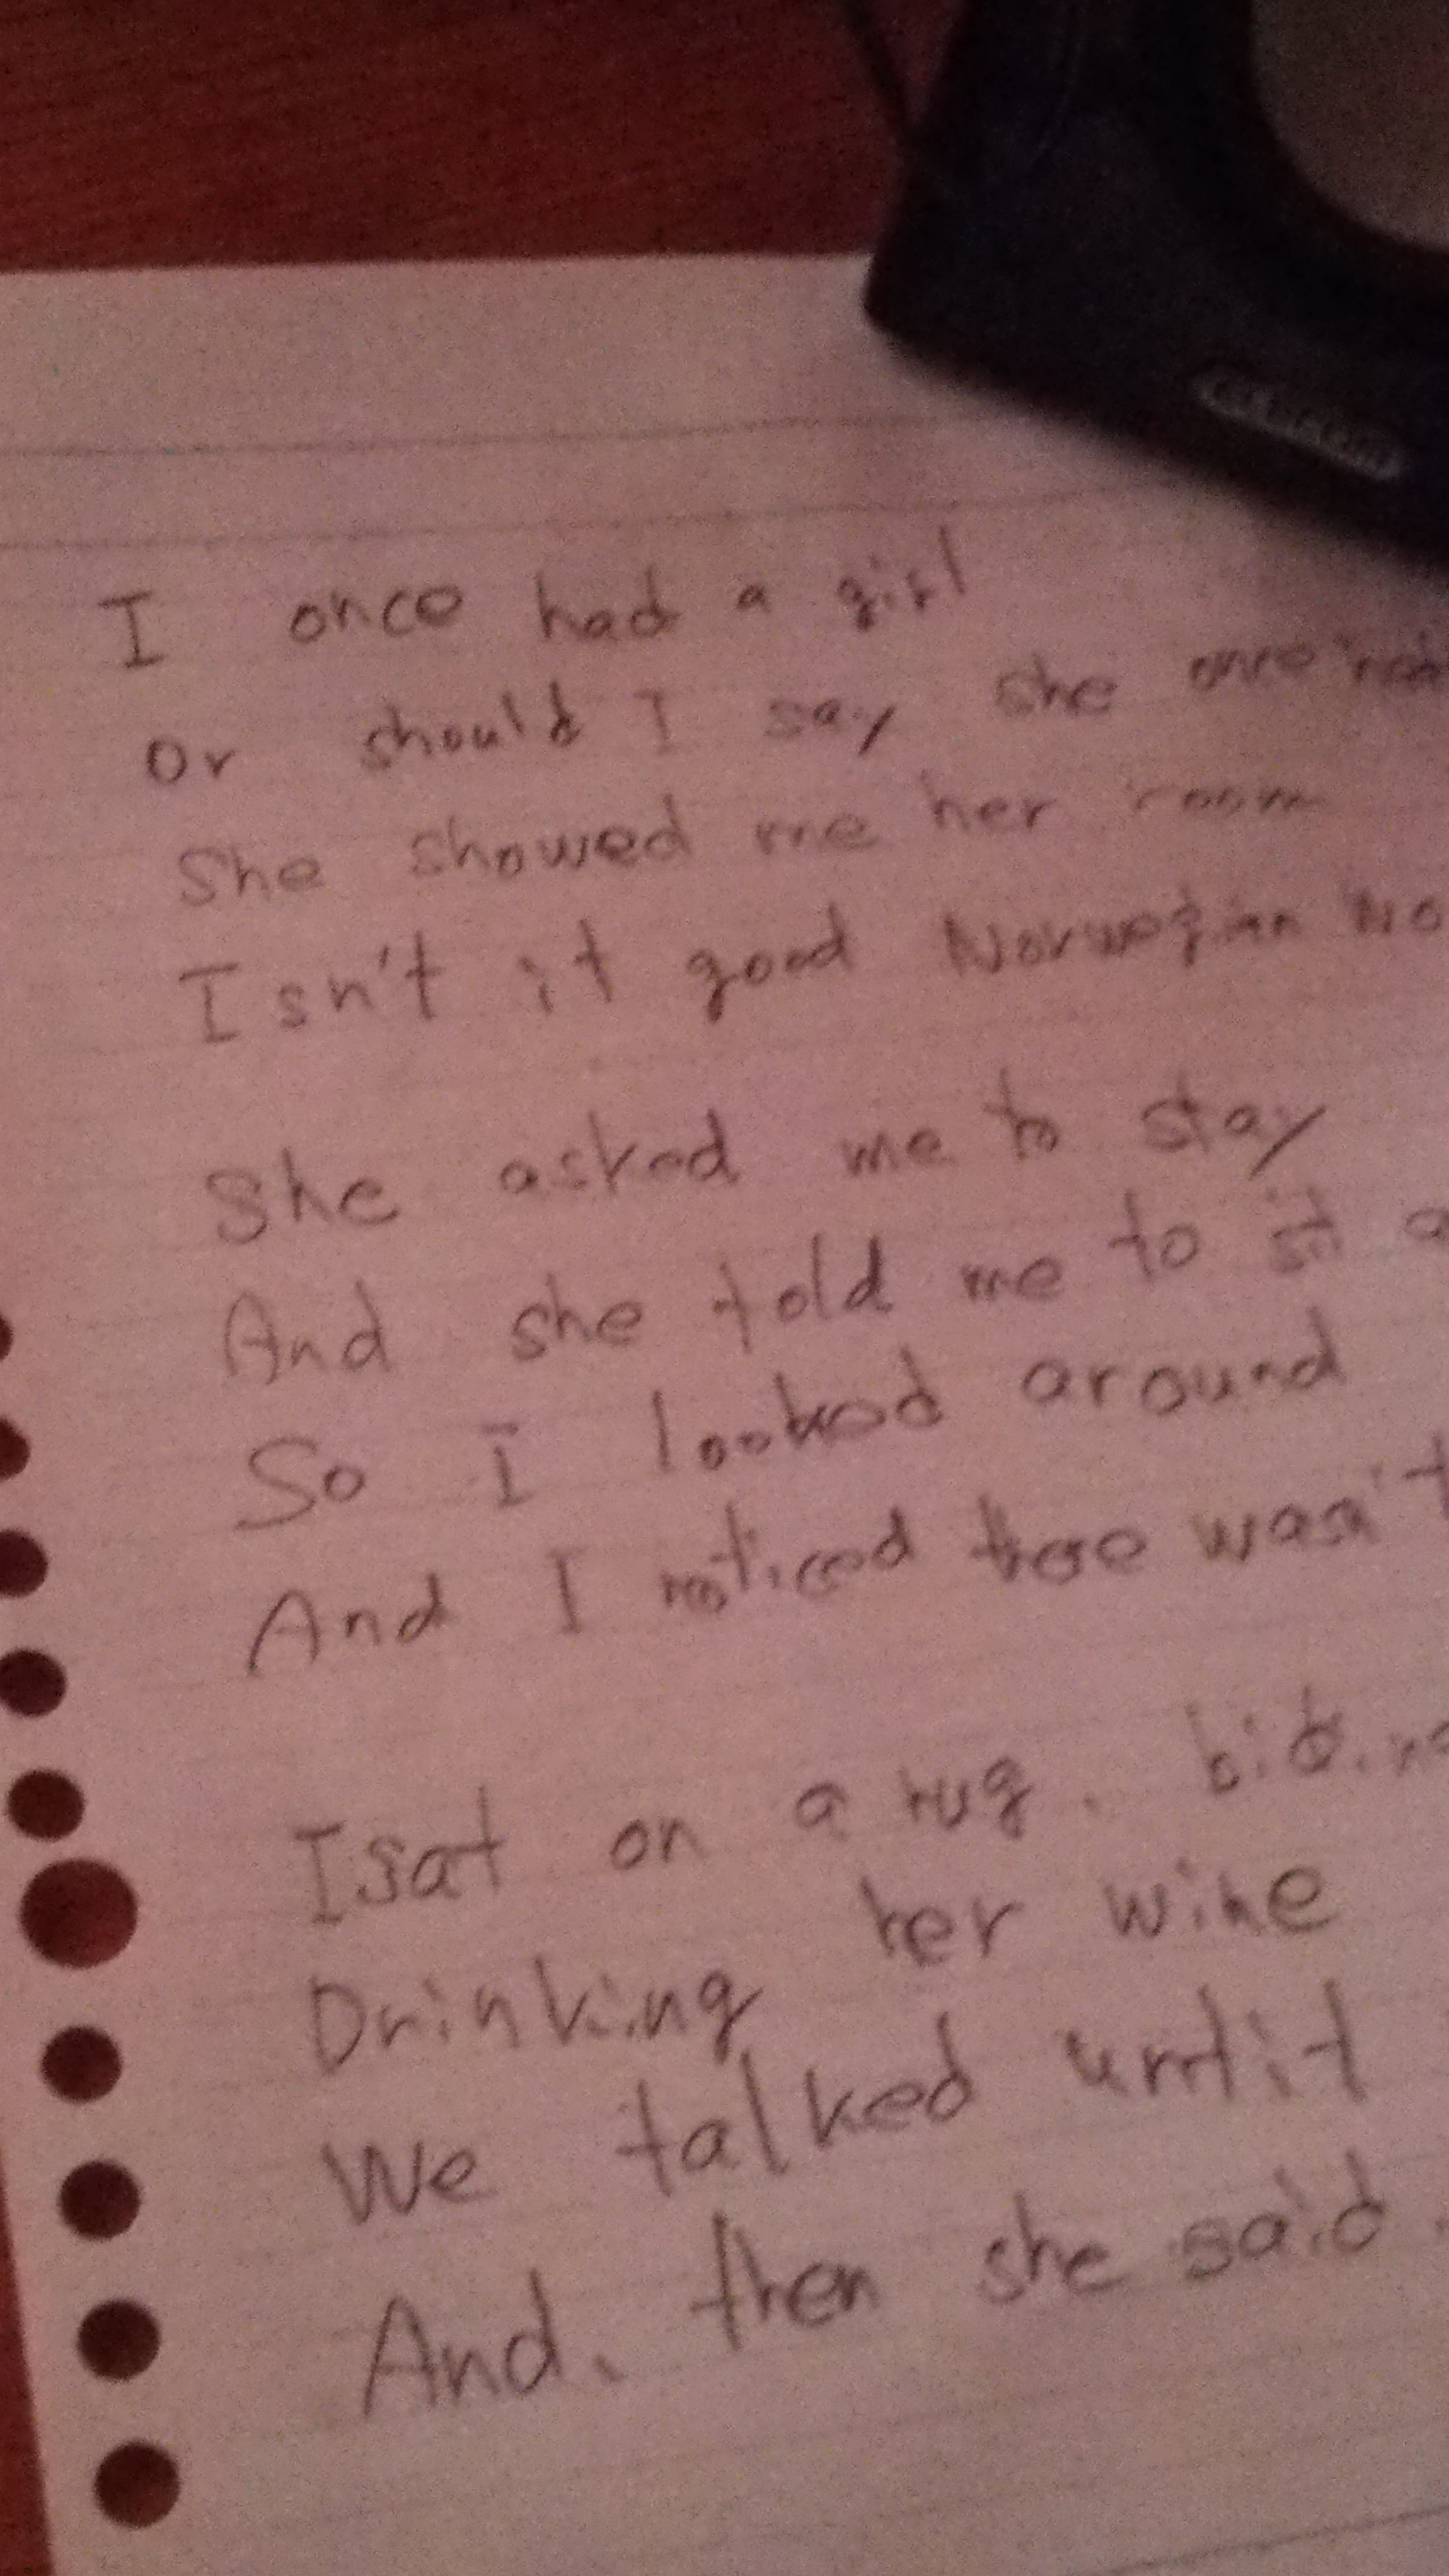 I once had a girl
Or should I say she once
She showed me her room
Isn't it good Norwegian
She asked me to stay
And she told me to sit
So I looked around
And I noticed there wasn't
I sat on a rug.
Drinking her wine
We talked until
And. then she said